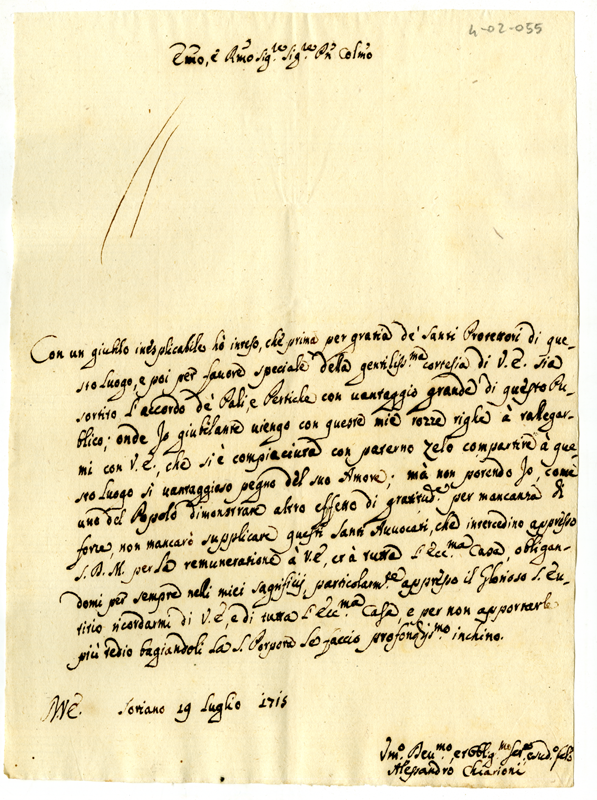 4-02-055
Emo, e Rmo Sig.re Sig.re Pn Colmo
Con un giubilo inesplicabile hò inteso, che prima per gratia de Santi Protettori di que-
sto luogo, e poi per favore speciale della gentiliss.ma cortesia di V.E. sia
sortito l'accordo de Pali, e Pertiche con vantaggio grande di questo Pu-
blico; onde Io giubilante viengo con queste mie rozze righe à rallegar-
mi con V.E., che si è compiaciuta con paterno zelo compartire à que-
sto luogo si vantaggioso pegno del suo Amore; mà non potendo Io, come
uno del Popolo dimonstrare altro effetto di gratitud.e per mancanza di
forze, non mancarò supplicare questi Santi Avvocati, che intercedino appresso
S.D.M. per la remuneratione à V.E, et à tutta l'Ecc.ma Casa, obligan-
domi per sempre nelli miei sagrifitij particolarm.te appresso il Glorioso S. Eu-
titio ricordarmi di V.E, e di tutta l'Ecc.ma Casa, e per non apportarle
più tedio bagiandoli la S. Porpora le faccio profondiss.mo inchino.
V.E. Soriano 19 luglio 1715
Um.o Dev.mo, et obblig.mo Ser.re, e sud.o fed.e
Alessandro Chiarioni